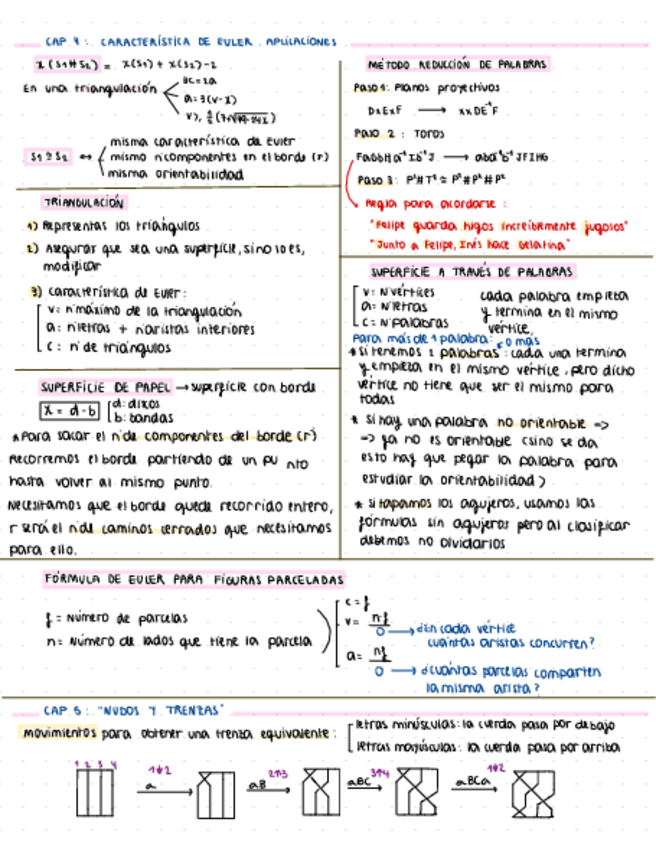 CAP. 4: CARACTERÍSTICA DE EULER. APLICACIONES
χ(S1#S2) = χ(S1) + χ(S2) - 2
En una triangulación
3c = 2a
a = 3(v-χ)
S1 ≅ S2 ↔
misma característica de Euler
mismo nºcomponentes en el borde (r)
misma orientabilidad
TRIANGULACIÓN
1) Representas los triángulos
2) Asegurar que sea una superficie, si no lo es,
modificar
3) característica de Euler:
v= nºmáximo de la triangulación
a: nºletras + nºaristas interiores
c: nº de triángulos
SUPERFÍCIE DE PAPEL → superficie con borde
χ = d - b
d: discos
b: bandas
*Para sacar el nºde componentes del borde (r)
recorremos el borde partiendo de un pu nto
hasta volver al mismo punto.
Necesitamos que el borde quede recorrido entero,
r será el nºde caminos cerrados que necesitamos
para ello.
MÉTODO REDUCCIÓN DE PALABRAS
Paso 1: Planos proyectivos
DxExF → xxDE⁻¹F
Paso 2: Toros
→ aba⁻¹b⁻¹JFIHG
Paso 3: P²#T² ≅ P²#P²#P²
Regla para acordarse:
"Felipe guarda higos increíblemente jugosos"
"Junto a Felipe, Inés hace gelatina"
SUPERFÍCIE A TRAVÉS DE PALABRAS
v: nºvértices
a: nºletras
c: nºpalabras
cada palabra empieza
y termina en el mismo
vértice.
Para más de 1 palabra:
o más
* si tenemos 2 palabras: cada una termina
y empieza en el mismo vértice, pero dicho
vértice no tiene que ser el mismo para
todas
* si hay una palabra no orientable =>
=> ya no es orientable (si no se da
esto hay que pegar la palabra para
estudiar la orientabilidad)
* si tapamos los agujeros, usamos las
fórmulas sin agujeros pero al clasificar
debemos no olvidarlos
FÓRMULA DE EULER PARA FIGURAS PARCELADAS
f = Número de parcelas
n = Número de lados que tiene la parcela
c = f
v = nf
→ ¿En cada vértice
cuántas aristas concurren?
a = nf
→ ¿cuántas parcelas comparten
la misma arista?
CAP 5: "NUDOS Y TRENZAS"
Movimientos para obtener una trenza equivalente:
letras minúsculas: la cuerda pasa por debajo
letras mayúsculas: la cuerda pasa por arriba
1 2 3 4
a
aB
aBC
aBCa